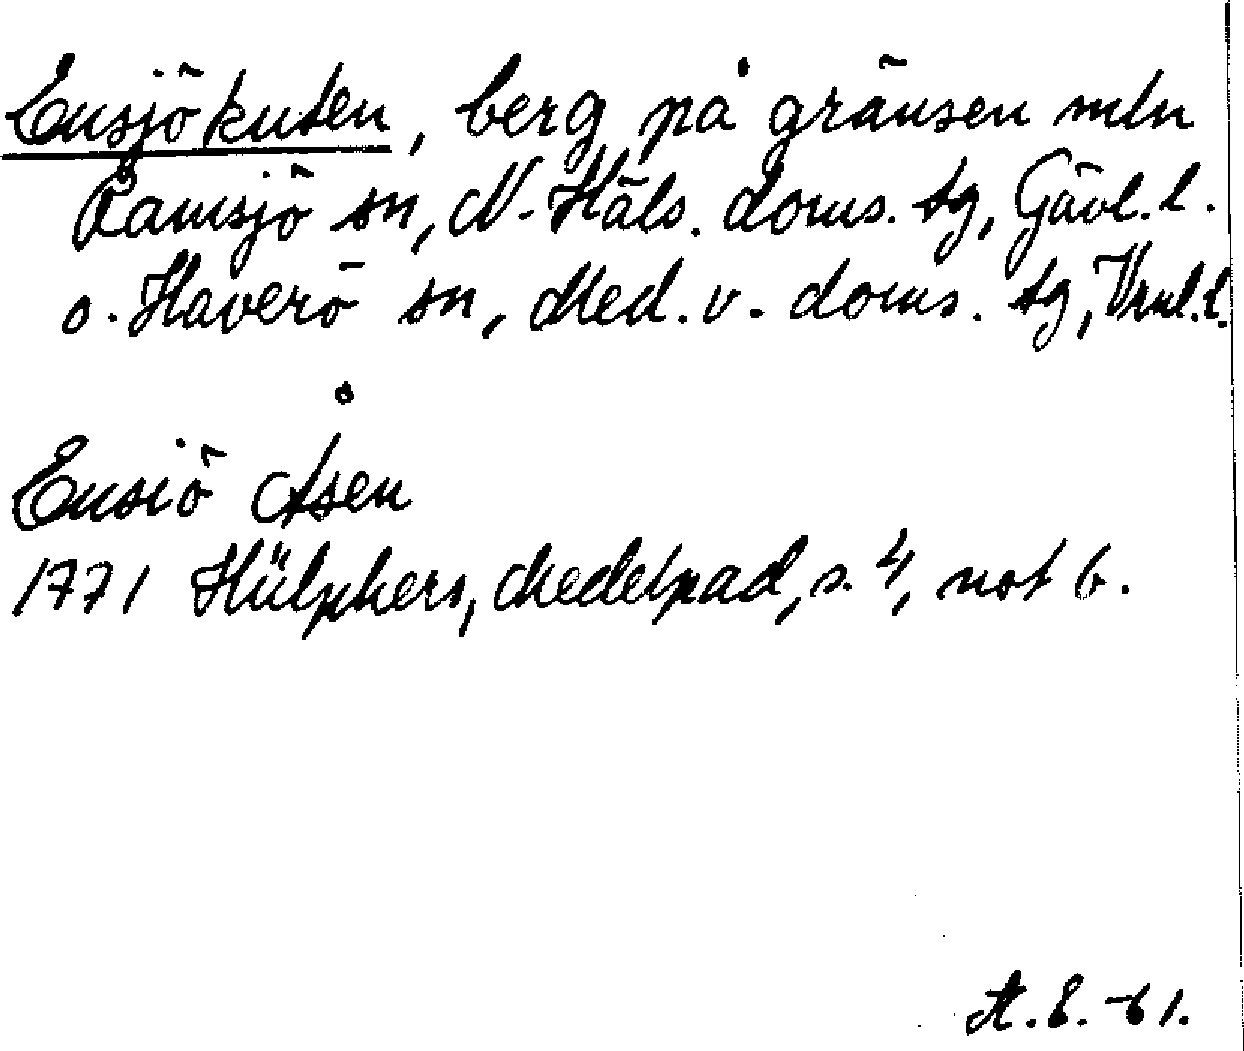 Ensjökuten, berg på gränsen mln
Ramsjö sn, N. Häls. doms. tg, Gävl. l.
o. Haverö sn, Med. v. doms. tg, Vnl. l.
Ensiö Åsen
1771 Hülphers, Medelpad, s. 4, not b.
A. E. -61.